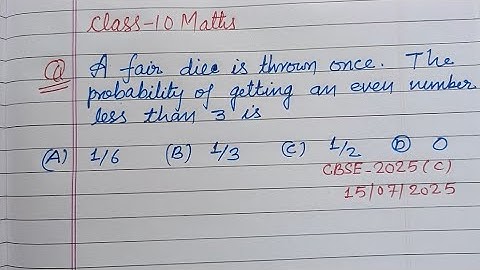 Class-10 Maths
Q A fair dice is thrown once. The
probability of getting an even number
less than 3 is
(A) 1/6 (B) 1/3 (C) 1/2 (D) 0
CBSE-2025(C)
15/07/2025